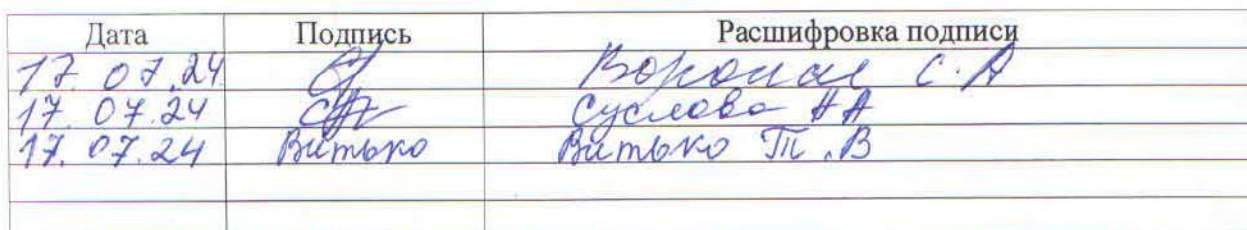 Дата Подпись Расшифровка подписи
17.07.24 С.А
17.07.24 Суслова АА
17.07.24 Витько Витько Т.В